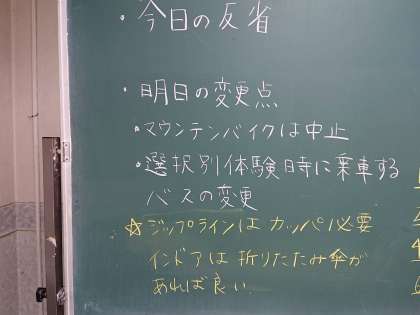 ・今日の反省
・明日の変更点
・マウンテンバイクは中止
・選択別体験時に乗車する
バスの変更
☆ジップラインはカッパ必要
インドアは折りたたみ傘が
あれば良い.